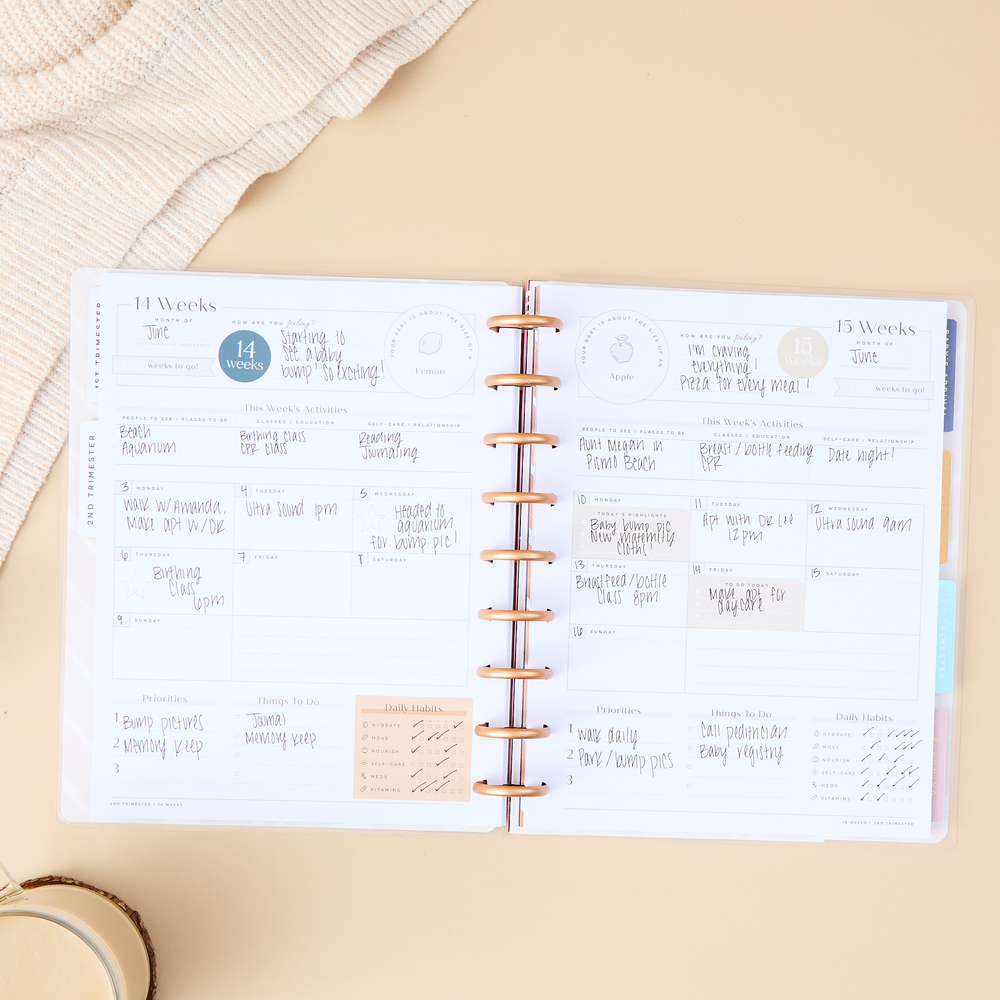 1ST TRIMESTER
2ND TRIMESTER
14 Weeks
MONTH OF:
June
weeks to go!
14
weeks
HOW ARE YOU feeling?
Starting to
see a baby
bump! So exciting!
YOUR BABY IS ABOUT THE SIZE OF A
Lemon
This Week's Activities
PEOPLE TO SEE / PLACES TO BE
Beach
Aquarium
CLASSES / EDUCATION
Birthing class
CPR class
SELF-CARE / RELATIONSHIP
Reading
Journaling
3 MONDAY
Walk w/Amanda,
Make apt w/DR.
4 TUESDAY
Ultra sound 1pm
5 WEDNESDAY
Headed to
aquarium
for bump pic!
6 THURSDAY
Birthing
Class
6pm
7 FRIDAY
8 SATURDAY
9 SUNDAY
Priorities
1 Bump pictures
2 Memory Keep
3
Things To Do
Journal
Memory Keep
Daily Habits
HYDRATE
MOVE
NOURISH
SELF-CARE
MEDS
VITAMINS
2ND TRIMESTER / 14 WEEKS
YOUR BABY IS ABOUT THE SIZE OF AN
Apple
HOW ARE YOU feeling?
I'm craving
everything!
Pizza for every meal!
15
weeks
15 Weeks
MONTH OF:
June
weeks to go!
This Week's Activities
PEOPLE TO SEE / PLACES TO BE
Aunt Megan in
Pismo Beach
CLASSES / EDUCATION
Breast / bottle feeding
CPR
SELF-CARE / RELATIONSHIP
Date night!
10 MONDAY
TODAY'S HIGHLIGHTS
Baby bump pic
New maternity
cloths!
11 TUESDAY
Apt with DR Lee
12pm
12 WEDNESDAY
Ultra sound 9am
13 THURSDAY
Breastfeed/bottle
Class 8pm
14 FRIDAY
TO DO TODAY
Make apt for
daycare
15 SATURDAY
16 SUNDAY
Priorities
1 Walk daily
2 Park/bump pics
3
Things To Do
Call peditricfan
Baby registry
Daily Habits
HYDRATE
MOVE
NOURISH
SELF-CARE
MEDS
VITAMINS
15 WEEKS / 2ND TRIMESTER